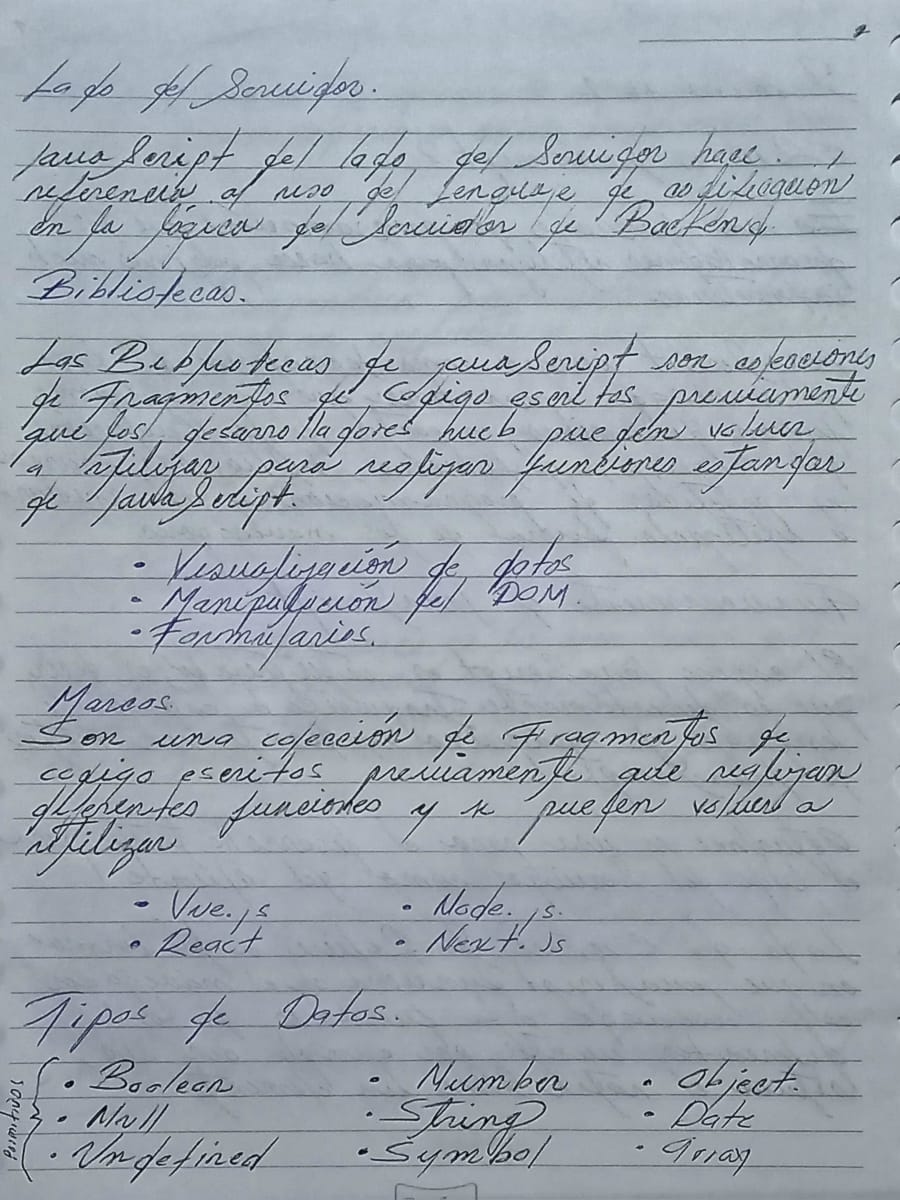 2
Lado del Servidor.
JavaScript del lado del Servidor hace
referencia al uso del Lenguaje de codificación
en la lógica del Servidor de Backend.
Bibliotecas.
Las Bibliotecas de JavaScript son colecciones
de Fragmentos de Codigo escritos previamente
que los desarrolladores hueb pueden volver
a utilizar para realizar funciones estandar
de JavaScript.
• Visualización de datos
• Manipulación del DOM.
• Formularios.
Marcos.
Son una colección de Fragmentos de
codigo escritos previamente que realizan
diferentes funciones y se pueden volver a
utilizar
• Vue.js • Node.js.
• React • Next.js
Tipos de Datos.
Primitivos
• Boolean • Number • Object.
• Null • String • Date
• Undefined • Symbol • Array